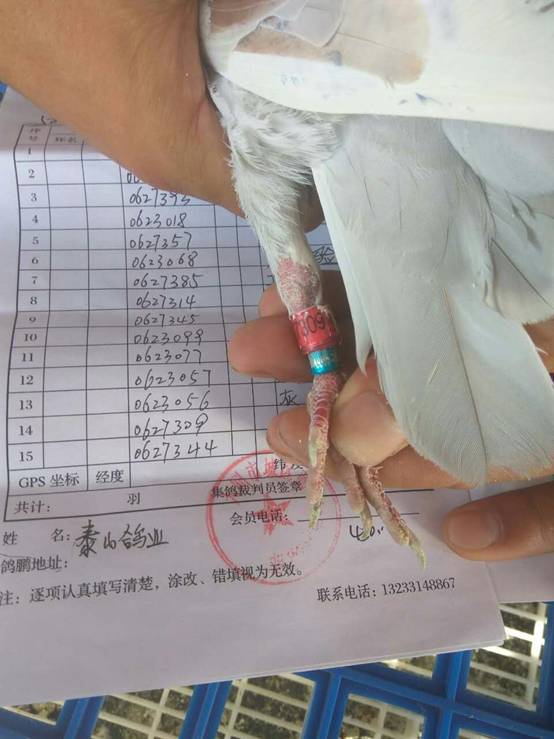 序号
1
2
3 0627393
4 0623018
5 0627357
6 0623068
7 0627385
8 0627314
9 0627345
10 0623099
11 0623077
12 0623057
13 0623056 灰
14 0627309
15 0627344
GPS 坐标 经度
共计: 羽 集鸽裁判员签章
姓 名: 泰山鸽业 会员电话:
鸽鹏地址:
注: 逐项认真填写清楚,涂改、错填视为无效。
联系电话: 13233148867